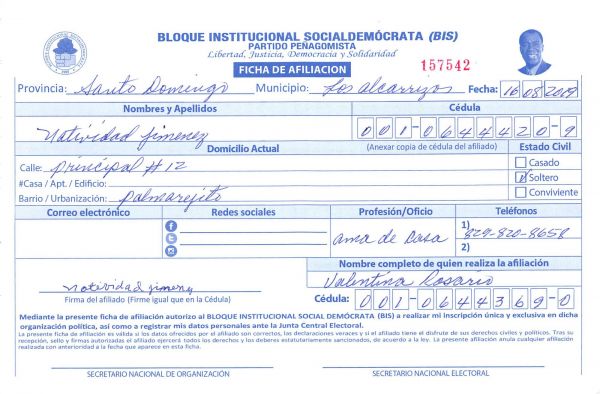 BLOQUE INSTITUCIONAL SOCIALDEMÓCRATA (BIS)
PARTIDO PEÑAGOMISTA
Libertad, Justicia, Democracia y Solidaridad
FICHA DE AFILIACION
157542
Provincia: Santo Domingo Municipio: Los alcarrizos Fecha: 16/08/2019
Nombres y Apellidos Cédula
Natividad Jimenez 001-0644420-9
Domicilio Actual (Anexar copia de cédula del afiliado) Estado Civil
Calle: principal # 12 Casado
#Casa / Apt. / Edificio: Soltero
Barrio / Urbanización: palmarejito Conviviente
Correo electrónico Redes sociales Profesión/Oficio Teléfonos
ama de Casa 1) 829-820-8658
2)
Nombre completo de quien realiza la afiliación
Valentina Rosario
natividad jimenez
Firma del afiliado (Firme igual que en la Cédula) Cédula: 001-0644369-0
Mediante la presente ficha de afiliación autorizo al BLOQUE INSTITUCIONAL SOCIAL DEMÓCRATA (BIS) a realizar mi Inscripción única y exclusiva en dicha
organización política, así como a registrar mis datos personales ante la Junta Central Electoral.
La presente ficha de afiliación es válida si los datos ofrecidos por el afiliado son correctos, las declaraciones veraces y si el afiliado tiene el disfrute de sus derechos civiles y políticos. Tras su
recepción, sello y firmas autorizadas el afiliado ejercerá todos los derechos y los deberes estatutariamente sancionados, de acuerdo a la ley. La presente afiliación anula cualquier afiliación
realizada con anterioridad a la fecha que aparece en esta ficha.
SECRETARIO NACIONAL DE ORGANIZACIÓN SECRETARIO NACIONAL ELECTORAL